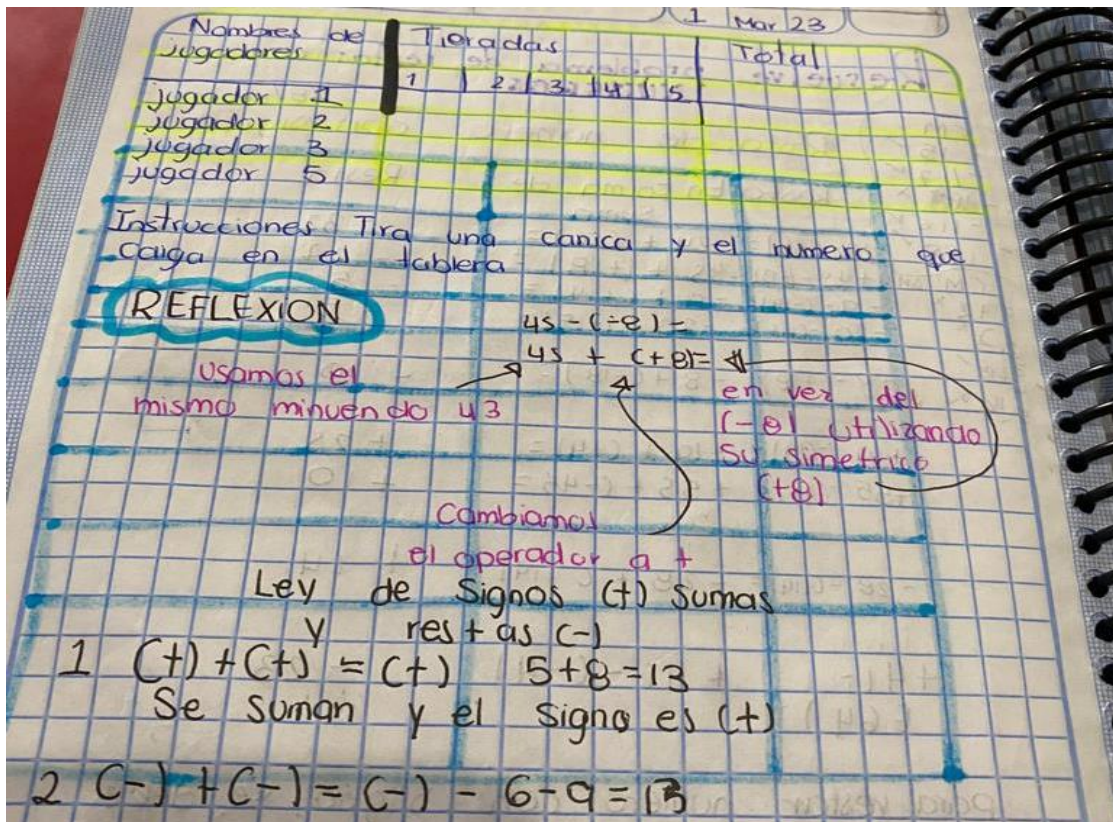 1 Mar 23
Nombres de Tieradas Total
jugadores
1 2 3 4 5
jugador 1
jugador 2
jugador 3
jugador 5
Instrucciones Tira una canica y el numero que
caiga en el tablera
REFLEXION
45-(-8)=
45 + (+8)=
Usamos el
mismo minuendo 43
en vez del
(-8) utilizando
su simetrico
(+8)
Cambiamos
el operador a +
Ley de Signos (+) sumas
y restas (-)
1 (+)+(+) = (+) 5+8=13
Se suman y el signo es (+)
2 (-)+(-)=(-) -6-9=13